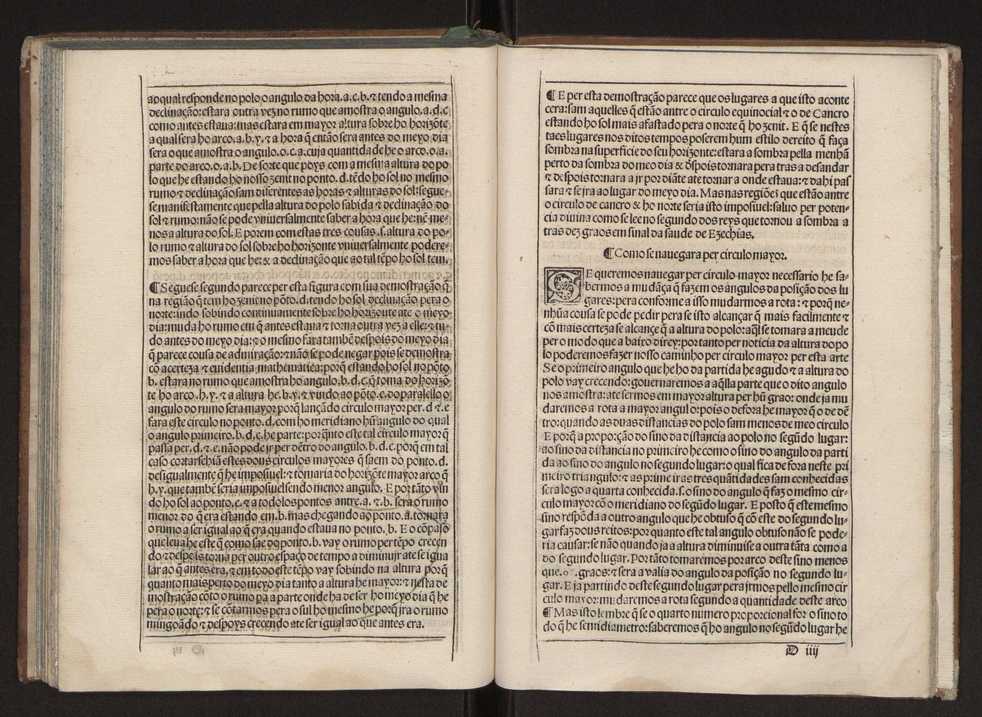 ao qual responde no polo o angulo da hora. a.c.b. ⁊ tendo a mesma
declinação: estara outra vez no rumo que amostra o angulo. a.d.c
como antes estaua: mas estara em mayor altura sobre ho horizõte
a qual sera ho arco. a.b.y. ⁊ a hora q̃ então sera antes do meyo dia
sera o que amostra o angulo. o.c.a. cuja quantidade he o arco. o.a.
parte do arco. o.a.b. De sorte que poys com a mesma altura do po
lo que he estando ho nosso zenit no ponto. d. tẽdo ho sol no mesmo
rumo ⁊ declinação sam diferentes as horas ⁊ alturas do sol: segue-
se manifestamente que pella altura do polo sabida ⁊ declinação do
sol ⁊ rumo: não se pode vniuersalmente saber a hora que he: nẽ me-
nos a altura do sol. E porem com estas tres cousas .s. altura do po-
lo rumo ⁊ altura do sol sobre ho horizonte vniuersalmente podere-
mos saber a hora que he: ⁊ a declinação que ao tal tẽpo ho sol tem.
¶ Seguese segundo parece per esta figura com sua demostração q̃
na região q̃ tem ho zenic no põto. d. tendo ho sol declinação pera o
norte: indo sobindo continuamente sobre ho horizonte ate o meyo
dia: muda ho rumo em q̃ antes estaua ⁊ torna outra vez a elle: ⁊ tu-
do antes do meyo dia: ⁊ o mesmo fara tambẽ despois do meyo dia
q̃ parece cousa de admiração: ⁊ não se pode negar pois se demostra
cõ acerteza ⁊ euidentia mathematica: porq̃ estando ho sol no põto
b. estara no rumo que amostra ho angulo. b.d.c. q̃ toma do horizõ
te ho arco. h.y. ⁊ a altura he. b.y. ⁊ vindo ao põto. e. do paralello o
angulo do rumo sera mayor porq̃ lançãdo circulo mayor per. d. ⁊ e
fara este circulo no ponto. d. com ho meridiano hũ angulo do qual
o angulo primeiro. b.d.c. he parte: porq̃nto este tal circulo mayor q̃
passa per. d. ⁊ e. não pode jr per dẽtro do angulo. b.d.c. porq̃ em tal
caso cortarsehiã estes dous circulos mayores q̃ saem do ponto. d.
desigualmente q̃ he imposiuel: ⁊ tomaria do horizõte mayor arco q̃
h.y. que tambẽ seria imposiuel sendo menor angulo. E por tãto vin
do ho sol ao ponto. e. ⁊ a todolos pontos antre. a. ⁊ b. sera o rumo
menor do q̃ era estando em. b. mas chegando ao ponto. a. tornara
o rumo a ser igual ao q̃ era quando estaua no ponto. b. E o cõpaso
que leua he este q̃ como sae do ponto. b. vay o rumo per tẽpo crecen
do ⁊ despois torna per outro espaço de tempo a diminuyr ate se igua
lar ao q̃ antes era, ⁊ em todo este tẽpo vay sobindo na altura porq̃
quanto mais perto do meyo dia tanto a altura he mayor: ⁊ nesta de
mostração cõto o rumo pa a parte onde ha de ser ho meyo dia q̃ he
pera o norte: ⁊ se cõtarmos pera o sul ho mesmo he porq̃ ira o rumo
mingoãdo ⁊ despoys crecendo ate ser igual ao que antes era.
¶ E per esta demostração parece que os lugares a que isto aconte
cera: sam aquelles q̃ estão antre o circulo equinocial ⁊ o de Cancro
estando ho sol mais afastado pera o norte q̃ ho zenit. E q̃ se nestes
taes lugares nos ditos tempos poserem hum estilo dereito q̃ faça
sombra na superficie do seu horizonte: estara a sombra pella menhã
perto da sombra do meo dia ⁊ despois tornara pera tras a desandar
⁊ despois tornara a jr por diãte ate tornar a onde estaua: ⁊ dahi pas
sara ⁊ se jra ao lugar do meyo dia. Mas nas regiões que estão antre
o circulo de cancro ⁊ ho norte seria isto imposiuel: saluo per poten-
cia diuina como se lee no segundo dos reys que tornou a sombra a
tras dez graos em sinal da saude de Ezechias.
¶ Como se nauegara per circulo mayor.
SE queremos nauegar per circulo mayor necessario he sa-
bermos a mudãça q̃ fazem os angulos da posição dos lu
gares: pera conforme a isso mudarmos a rota: ⁊ porq̃ ne-
nhũa cousa se pode pedir pera se isto alcançar q̃ mais facilmente ⁊
cõ mais certeza se alcançe q̃ a altura do polo: aq̃l se tornara a meude
per o modo que a baixo direy: por tanto per noticia da altura do po
lo poderemos fazer nosso caminho per circulo mayor per esta arte
Se o primeiro angulo que he ho da partida he agudo ⁊ a altura do
polo vay crecendo: gouernaremos a aq̃lla parte que o dito angulo
nos amostra: ate sermos em mayor altura per hũ grao: onde ja mu
daremos a rota a mayor angulo: pois o de fora he mayor q̃ o de dẽ
tro: quando as duas distancias do polo sam menos de meo circulo
E porq̃ a proporção do sino da distancia ao polo no segũdo lugar:
ao sino da distancia no primeiro he como o sino do angulo da parti
da ao sino do angulo no segundo lugar: o qual fica de fora neste pri
meiro triangulo: ⁊ as primeiras tres quãtidades sam conhecidas
sera logo a quarta conhecida .s. o sino do angulo q̃ faz o mesmo cir-
culo mayor cõ o meridiano do segũdo lugar. E posto q̃ este mesmo
sino respõda a outro angulo que he obtuso q̃ cõ este do segundo lu-
gar faz dous reitos: por quanto este tal angulo obtuso não se pode-
ria causar: se não quando ja a altura diminuise a outra tãta como a
do segundo lugar. Por tãto tomaremos por arco deste sino menos
que. graos: ⁊ sera a valia do angulo da posição no segundo lu-
gar. E ja partindo deste segundo lugar pera jrmos pello mesmo cir
culo mayor: mudaremos a rota segundo a quantidade deste arco
¶ Mas isto lembre q̃ se o quarto numero proporcional for o sino to
do q̃ he semidiametro: saberemos q̃ ho angulo no segũdo lugar he
D iiij